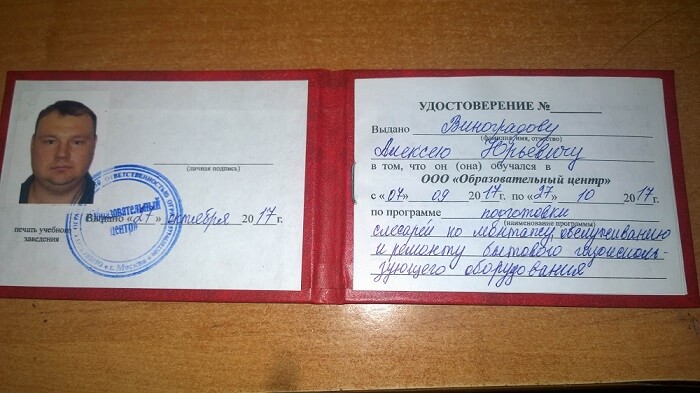 (личная подпись)
Выдано «27» октября 2017 г.
печать учебного
заведения
Образовательный
центр
г. Москва
УДОСТОВЕРЕНИЕ №
Выдано Виноградову
(фамилия, имя, отчество)
Алексею Юрьевичу
в том, что он (она) обучался в
ООО «Образовательный центр»
с «07» 09 2017 г. по «27» 10 2017 г.
по программе подготовки
(наименование программы)
слесарей по монтажу обслуживанию
и ремонту бытового газоисполь-
зующего оборудования